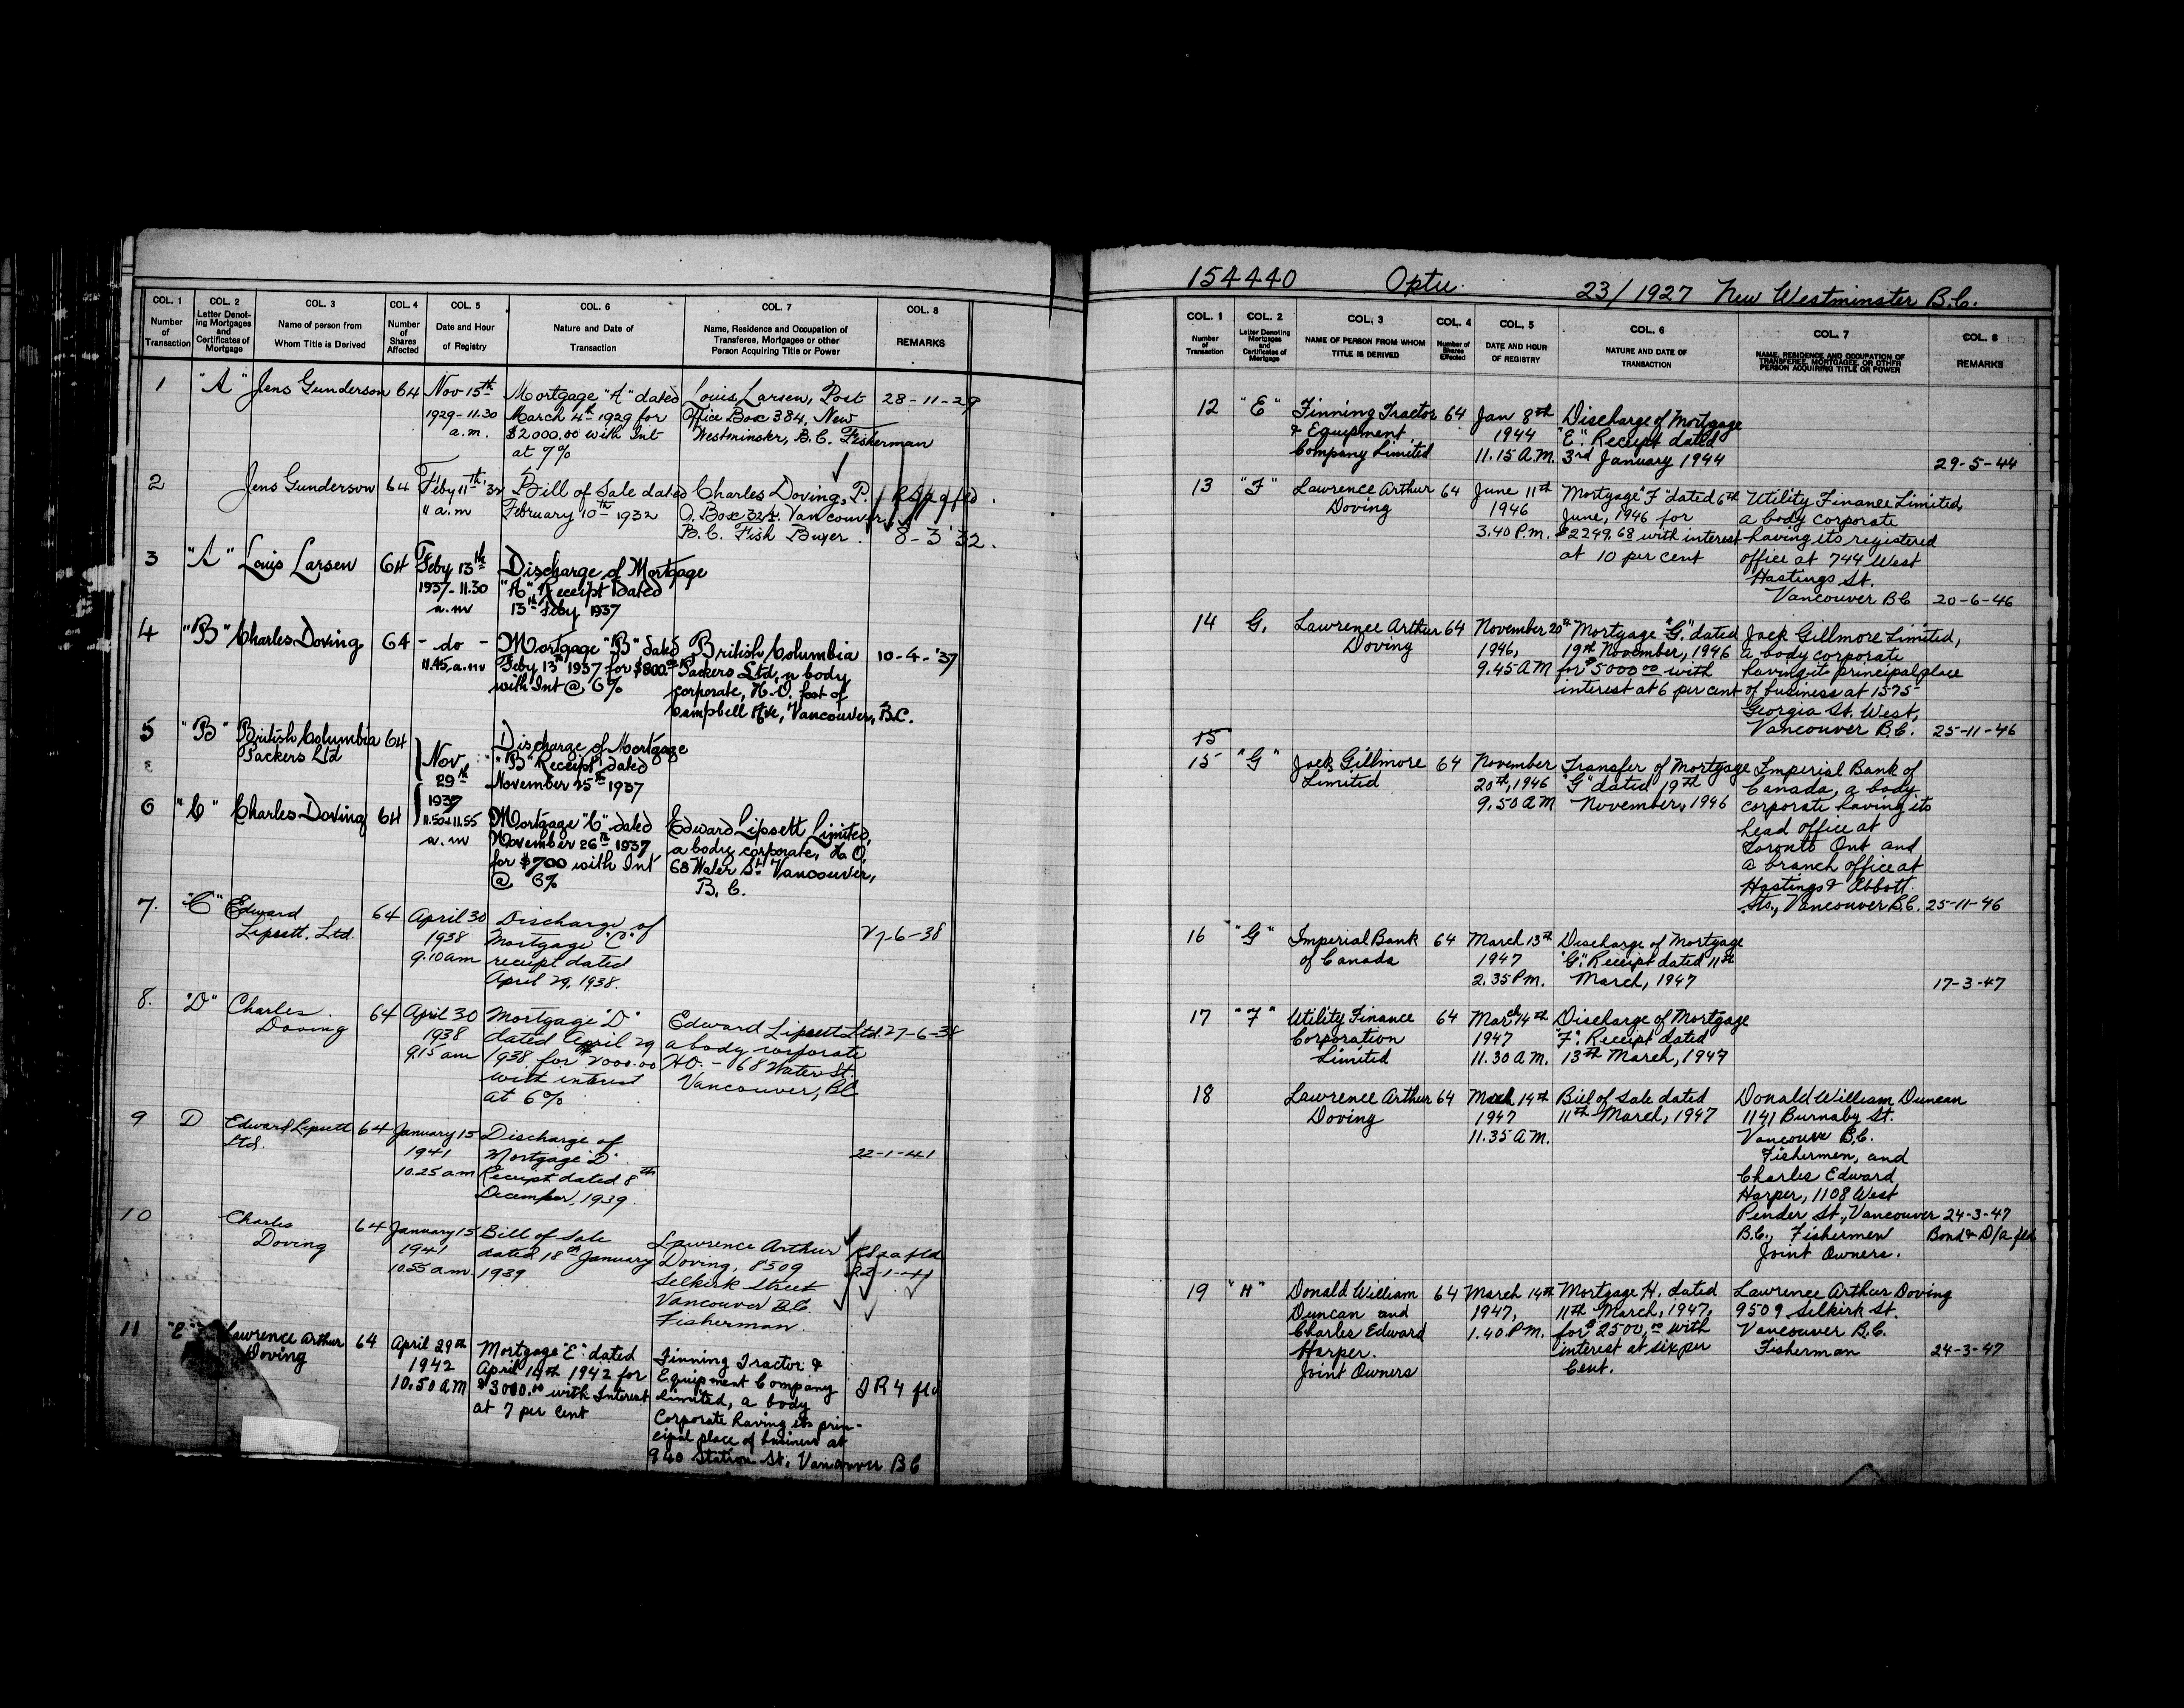 COL. 1 COL. 2 COL. 3 COL. 4 COL. 5 COL. 6 COL. 7 COL. 8
Number of Transaction
Letter Denot-ing Mortgages and Certificates of Mortgage
Name of person from Whom Title is Derived
Number of Shares Affected
Date and Hour of Registry
Nature and Date of Transaction
Name, Residence and Occupation of Transferee, Mortgagee or other Person Acquiring Title or Power
REMARKS
1 "A" Jens Gunderson 64 Nov 15th Mortgage "A" dated Louis Larsen, Post 28-11-29
1929-11.30 March 4th 1929 for Office Box 384, New
a.m. $2000.00 with Int Westminster, B.C. Fisherman
at 7%
2 Jens Gunderson 64 Feby 11th '32 Bill of Sale dated Charles Doving, P.
11 a.m February 10th 1932 O. Box 324. Vancouver
B.C. Fish Buyer. 8-3 '32.
3 "A" Louis Larsen 64 Feby 13th Discharge of Mortgage
1937-11.30 "A" Receipt dated
a.m 13th Feby 1937
4 "B" Charles Doving 64 - do - Mortgage "B" dated British Columbia 10-4-'37
11.45 a.m Feby 13th 1937 for $800.00 Packers Ltd, a body
with Int @ 6% corporate, H.O. foot of
Campbell Ave, Vancouver, B.C.
5 "B" British Columbia 64 Discharge of Mortgage
Packers Ltd Nov, "B" Receipt dated
29th November 25th 1937
1937
6 "C" Charles Doving 64 11.50 & 11.55 Mortgage "C" dated Edward Lipsett Limited,
a.m November 26th 1937 a body corporate, H.O.
for $700 with Int 68 Water St. Vancouver,
@ 6% B.C.
7. "C" Edward 64 April 30 Discharge of
Lipsett. Ltd. 1938 Mortgage "C" 27-6-38
9.10 am receipt dated
April 29, 1938.
8. "D" Charles 64 April 30 Mortgage "D" Edward Lipsett Ltd. 27-6-38
Doving 1938 dated April 29 a body corporate
9.15 am 1938 for $2000.00 H.O. - 68 Water St.
with interest Vancouver, BC
at 6%
9 D Edward Lipsett 64 January 15 Discharge of
Ltd. 1941 Mortgage "D". 22-1-41
10.25 am Receipt dated 8th
December, 1939.
10 Charles 64 January 15 Bill of Sale Lawrence Arthur
Doving 1941 dated 18th January Doving, 8509 22-1-41
10.55 a.m. 1939 Selkirk Street
Vancouver B.C.
Fisherman.
11 "E" Lawrence Arthur 64 April 29th Mortgage "E" dated Finning Tractor &
Doving 1942 April 1942 for Equipment Company
10.50 AM $3000.00 with Interest Limited, a body
at 7 per cent Corporate having its prin-
cipal place of business at
940 Station St. Vancouver BC
154440 23/1927 New Westminster B.C.
COL. 1 COL. 2 COL. 3 COL. 4 COL. 5 COL. 6 COL. 7 COL. 8
Number of Transaction
Letter Denoting Mortgages and Certificates of Mortgage
NAME OF PERSON FROM WHOM TITLE IS DERIVED
Number of Shares Effected
DATE AND HOUR OF REGISTRY
NATURE AND DATE OF TRANSACTION
NAME, RESIDENCE AND OCCUPATION OF TRANSFEREE, MORTGAGEE, OR OTHER PERSON ACQUIRING TITLE OR POWER
REMARKS
12 "E" Finning Tractor 64 Jan 8th Discharge of Mortgage
& Equipment 1944 "E". Receipt dated
Company Limited 11.15 A.M. 3rd January 1944 29-5-44
13 "F" Lawrence Arthur 64 June 11th Mortgage "F" dated 6th Utility Finance Limited,
Doving 1946 June, 1946 for a body corporate
3.40 P.m. $2249.68 with interest having its registered
at 10 per cent office at 744 West
Hastings St.
Vancouver BC 20-6-46
14 G. Lawrence Arthur 64 November 20th Mortgage "G." dated Jack Gillmore Limited,
Doving 1946, 19th November, 1946 a body corporate
9.45 AM for $5000.00 with having its principal place
interest at 6 per cent of business at 1575
Georgia St. West,
Vancouver B.C. 25-11-46
15
15 "G" Jack Gillmore 64 November Transfer of Mortgage Imperial Bank of
Limited 20th, 1946 "G" dated 19th Canada, a body
9.50 AM November, 1946 corporate having its
head office at
Toronto Ont and
a branch office at
Hastings & Abbott.
Sts., Vancouver B.C. 25-11-46
16 "G" Imperial Bank 64 March 13th Discharge of Mortgage
of Canada 1947 "G". Receipt dated 11th
2.35 P.m. March, 1947 17-3-47
17 "F" Utility Finance 64 March 14th Discharge of Mortgage
Corporation 1947 "F". Receipt dated
Limited 11.30 A.M. 13th March, 1947
18 Lawrence Arthur 64 March 14th Bill of Sale dated Donald William Duncan
Doving 1947 11th March, 1947 1141 Burnaby St.
11.35 A.M. Vancouver B.C.
Fishermen, and
Charles Edward
Harper, 1108 West
Pender St., Vancouver 24-3-47
B.C., Fishermen Bond & D/a fld
Joint Owners.
19 "H" Donald William 64 March 14th Mortgage H. dated Lawrence Arthur Doving
Duncan and 1947, 11th March, 1947, 9509 Selkirk St.
Charles Edward 1.40 P.M. for $2500.00 with Vancouver B.C.
Harper. interest at six per Fisherman 24-3-47
Joint Owners Cent.